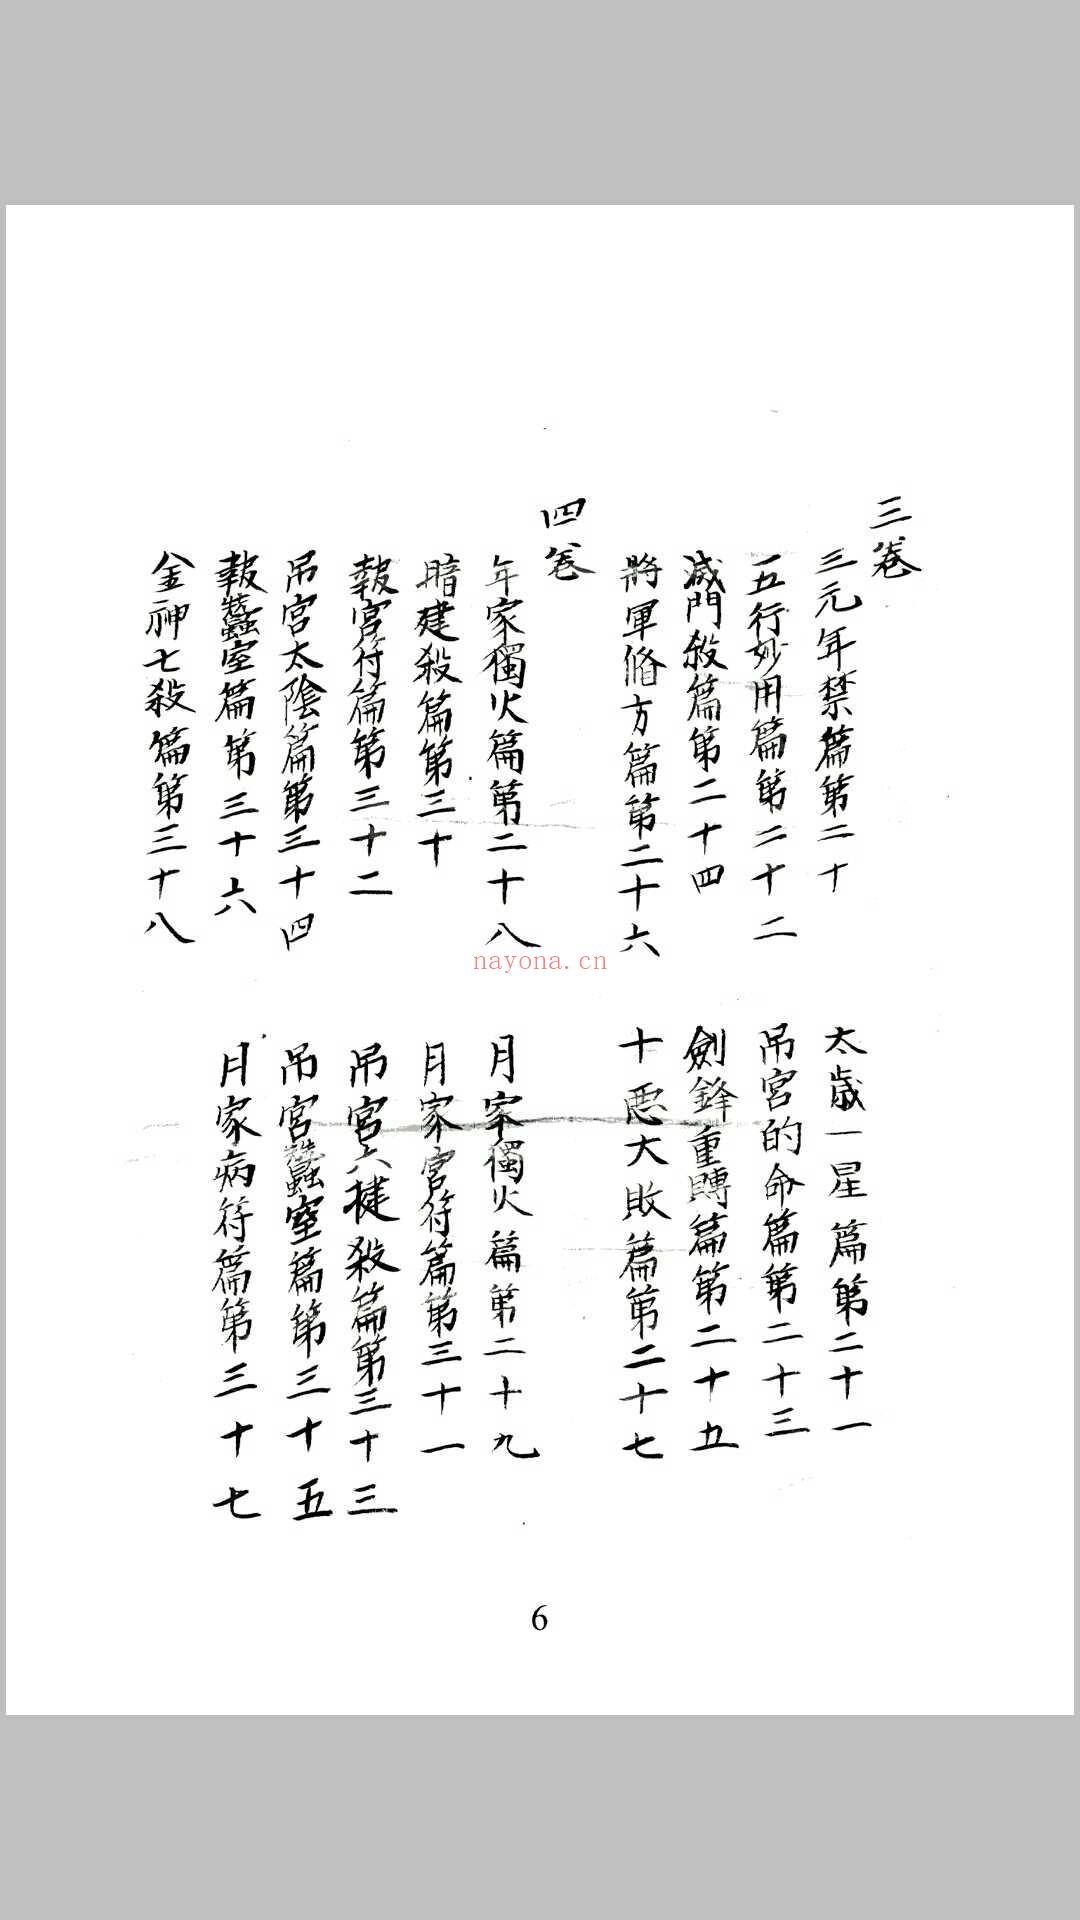 三卷
三元年禁篇第二十
太歲一星篇第二十一
五行妙用篇第二十二
吊宮的命篇第二十三
滅門殺篇第二十四
劍鋒重轉篇第二十五
將軍脩方篇第二十六
十恶大敗篇第二十七
四卷
年家獨火篇第二十八
月家獨火篇第二十九
暗建殺篇第三十
月家官符篇第三十一
報官符篇第三十二
吊宮六捷殺篇第三十三
吊宮太陰篇第三十四
吊宮蠶室篇第三十五
報蠶室篇第三十六
月家病符篇第三十七
金神七殺篇第三十八
nayona.cn
6